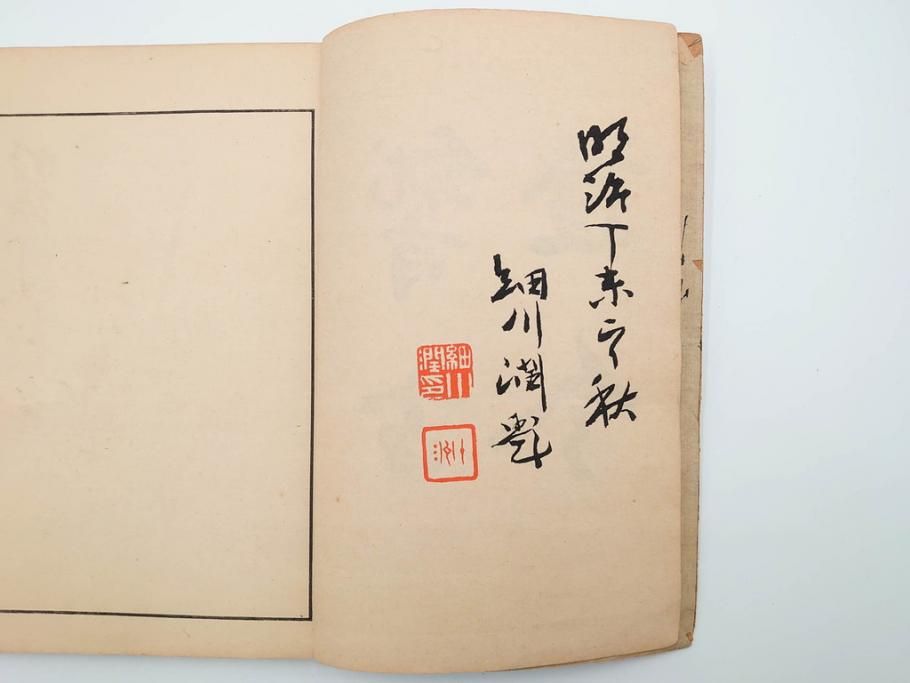 明治丁未秋
細川潤
細川潤印
十洲